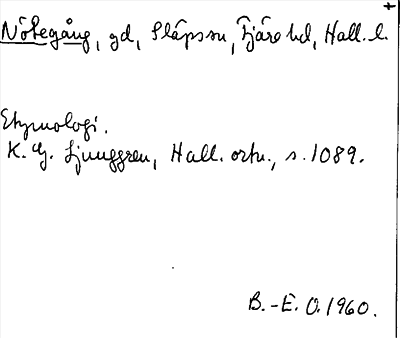 +
Nötegång, gd, Släps sn, Fjäre hd, Hall. l.
Etymologi.
K. G. Ljunggren, Hall. ortn., s. 1089.
B.-E. O. 1960.